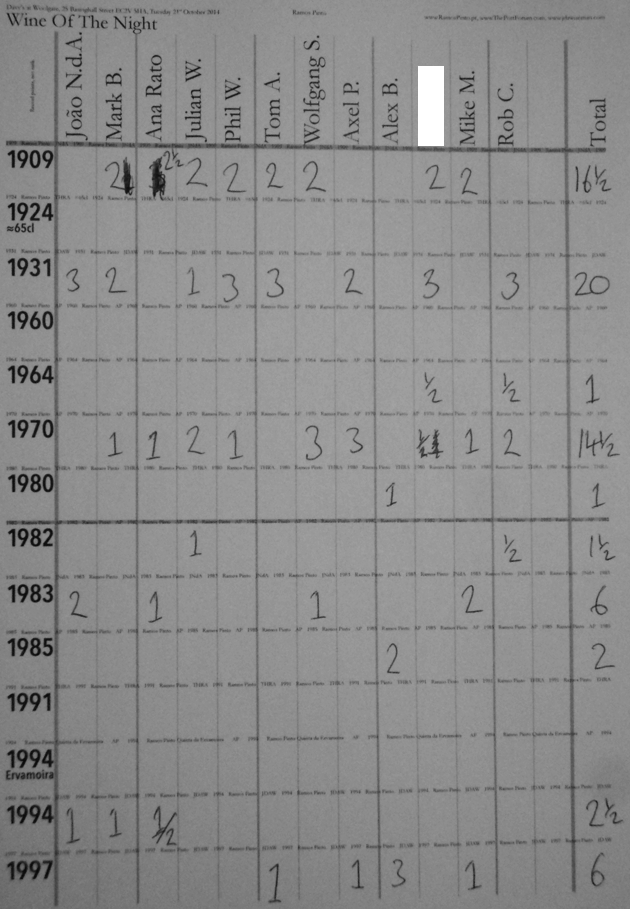 Dave's at Woolgate, 25 Basinghall Street EC2V 5HA, Tuesday 21st October 2014
Ramos Pinto
www.RamosPinto.pt, www.ThePortForum.com
Wine Of The Night
João N.d.A. Mark B. Ana Rato Julian W. Phil W. Tom A. Wolfgang S. Axel P. Alex B. Mike M. Rob C. Total
1909 2 2½ 2 2 2 2 2 2 16½
1924
≈65cl
1931 3 2 1 3 3 2 3 3 20
1960
1964 ½ ½ 1
1970 1 1 2 1 3 3 ½ 1 2 14½
1980 1 1
1982 1 ½ 1½
1983 2 1 1 2 6
1985 2 2
1991
1994
Ervamoira
1994 1 1 ½ 2½
1997 1 1 3 1 6